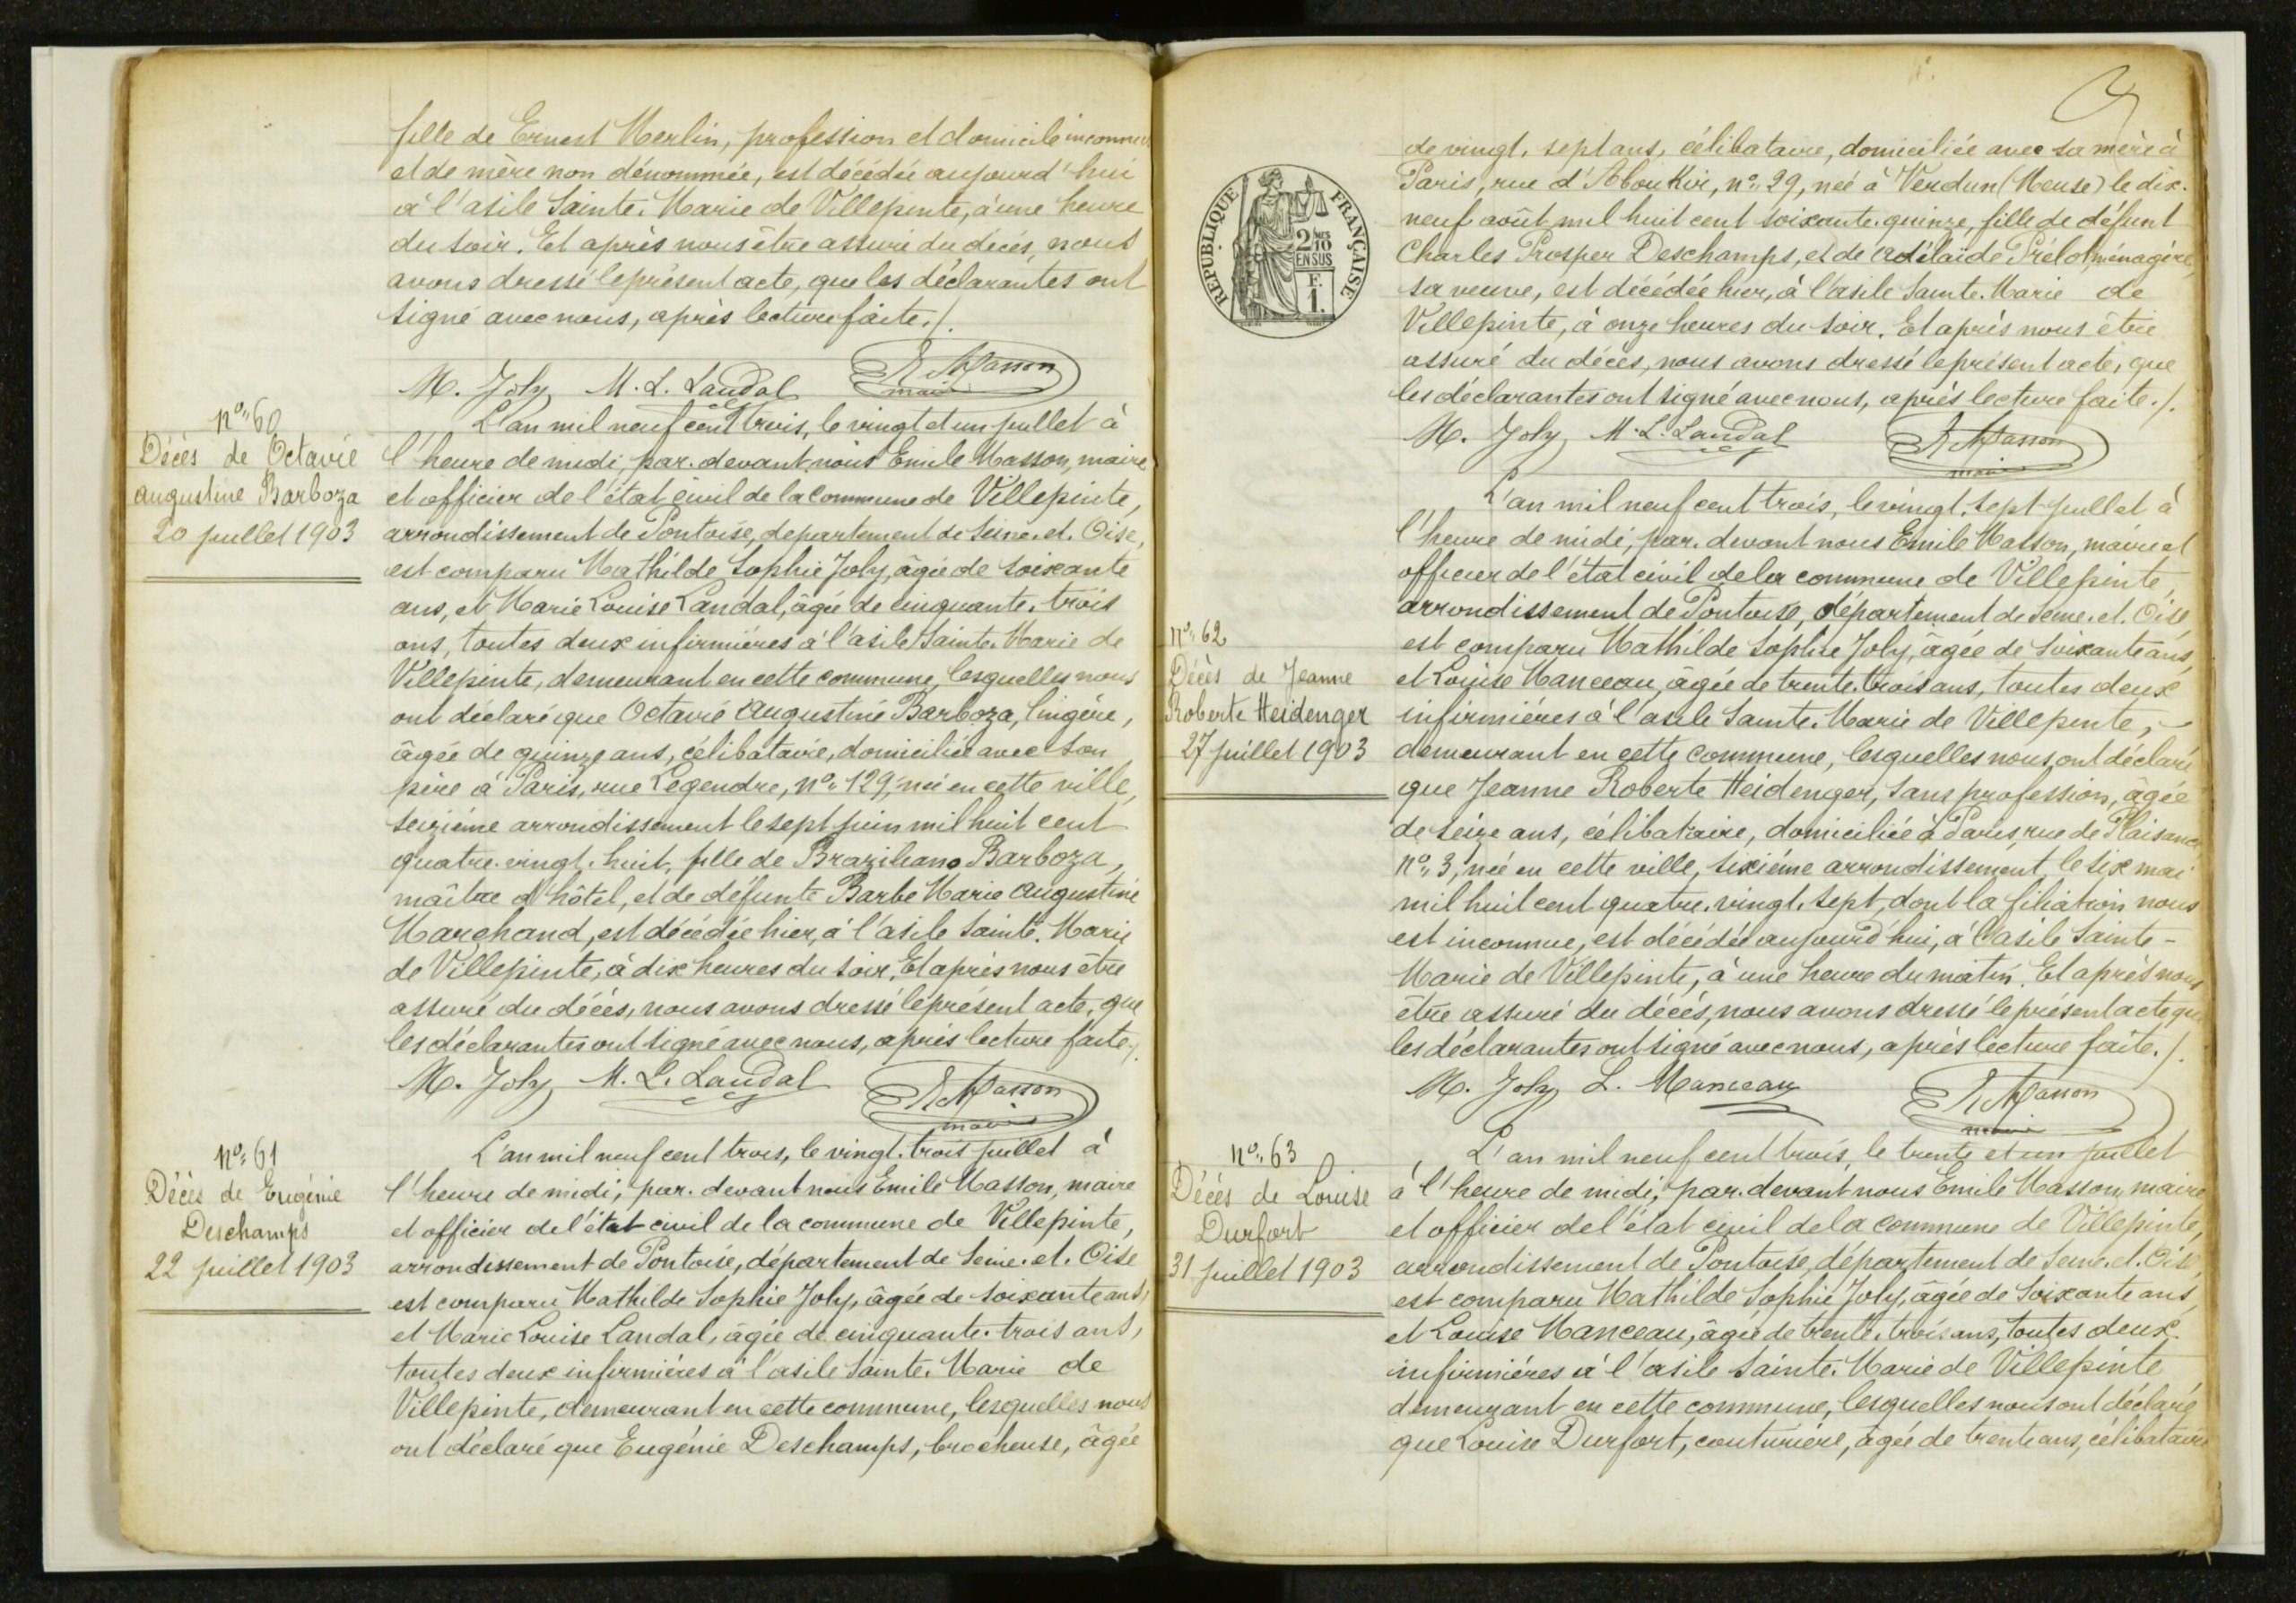 fille de Ernest Merlin, profession et domicile inconnus
et de mère non dénommée, est décédée aujourd'hui
à l'asile Sainte-Marie de Villepinte, à une heure
du soir. Et après nous être assuré du décès, nous
avons dressé le présent acte, que les déclarantes ont
signé avec nous, après lecture faite./.
M. Joly M. L. Landal E. Masson
maire
n°. 60
Décès de Octavie
Augustine Barboza
20 juillet 1903
L'an mil neuf cent trois, le vingt et un juillet à
l'heure de midi, par-devant nous Emile Masson, maire
et officier de l'état civil de la commune de Villepinte,
arrondissement de Pontoise, département de Seine-et-Oise,
est comparu Mathilde Sophie Joly, âgée de soixante
ans, et Marie Louise Landal, âgée de cinquante-trois
ans, toutes deux infirmières à l'asile Sainte-Marie de
Villepinte, demeurant en cette commune, lesquelles nous
ont déclaré que Octavie Augustine Barboza, lingère,
âgée de quinze ans, célibataire, domiciliée avec son
père à Paris, rue Legendre, n°. 129, née en cette ville,
seizième arrondissement le sept juin mil huit cent
quatre-vingt-huit, fille de Braziliano Barboza,
maître d'hôtel, et de défunte Barbe Marie Augustine
Marchand, est décédée hier, à l'asile Sainte-Marie
de Villepinte, à dix heures du soir. Et après nous être
assuré du décès, nous avons dressé le présent acte, que
les déclarantes ont signé avec nous, après lecture faite./.
M. Joly M. L. Landal E. Masson
maire
n°. 61
Décès de Eugénie
Deschamps
22 juillet 1903
L'an mil neuf cent trois, le vingt-trois juillet à
l'heure de midi, par-devant nous Emile Masson, maire
et officier de l'état civil de la commune de Villepinte,
arrondissement de Pontoise, département de Seine-et-Oise
est comparu Mathilde Sophie Joly, âgée de soixante ans,
et Marie Louise Landal, âgée de cinquante-trois ans,
toutes deux infirmières à l'asile Sainte-Marie de
Villepinte, demeurant en cette commune, lesquelles nous
ont déclaré que Eugénie Deschamps, brocheuse, âgée
RÉPUBLIQUE FRANÇAISE
2/10
EN SUS
F.
1.
de vingt-sept ans, célibataire, domiciliée avec sa mère à
Paris, rue d'Aboukir, n°. 29, née à Verdun (Meuse) le dix-
neuf août mil huit cent soixante-quinze, fille de défunt
Charles Prosper Deschamps, et de Adélaïde Prélot, ménagère,
sa veuve, est décédée hier, à l'asile Sainte-Marie de
Villepinte, à onze heures du soir. Et après nous être
assuré du décès, nous avons dressé le présent acte, que
les déclarantes ont signé avec nous, après lecture faite./.
M. Joly M. L. Landal E. Masson
maire
n°. 62
Décès de Jeanne
Roberte Heidenger
27 juillet 1903
L'an mil neuf cent trois, le vingt-sept juillet à
l'heure de midi, par-devant nous Emile Masson, maire et
officier de l'état civil de la commune de Villepinte,
arrondissement de Pontoise, département de Seine-et-Oise,
est comparu Mathilde Sophie Joly, âgée de soixante ans,
et Louise Manceau, âgée de trente-trois ans, toutes deux
infirmières à l'asile Sainte-Marie de Villepinte,
demeurant en cette commune, lesquelles nous ont déclaré
que Jeanne Roberte Heidenger, sans profession, âgée
de seize ans, célibataire, domiciliée à Paris, rue de Plaisance
n°. 3, née en cette ville, sixième arrondissement, le six mai
mil huit cent quatre-vingt-sept, dont la filiation nous
est inconnue, est décédée aujourd'hui, à l'asile Sainte-
Marie de Villepinte, à une heure du matin. Et après nous
être assuré du décès, nous avons dressé le présent acte que
les déclarantes ont signé avec nous, après lecture faite./.
M. Joly L. Manceau E. Masson
maire
n°. 63
Décès de Louise
Durfort
31 juillet 1903
L'an mil neuf cent trois, le trente et un juillet
à l'heure de midi, par-devant nous Emile Masson, maire
et officier de l'état civil de la commune de Villepinte,
arrondissement de Pontoise, département de Seine-et-Oise,
est comparu Mathilde Sophie Joly, âgée de soixante ans,
et Louise Manceau, âgée de trente-trois ans, toutes deux
infirmières à l'asile Sainte-Marie de Villepinte
demeurant en cette commune, lesquelles nous ont déclaré
que Louise Durfort, couturière, âgée de trente ans, célibataire